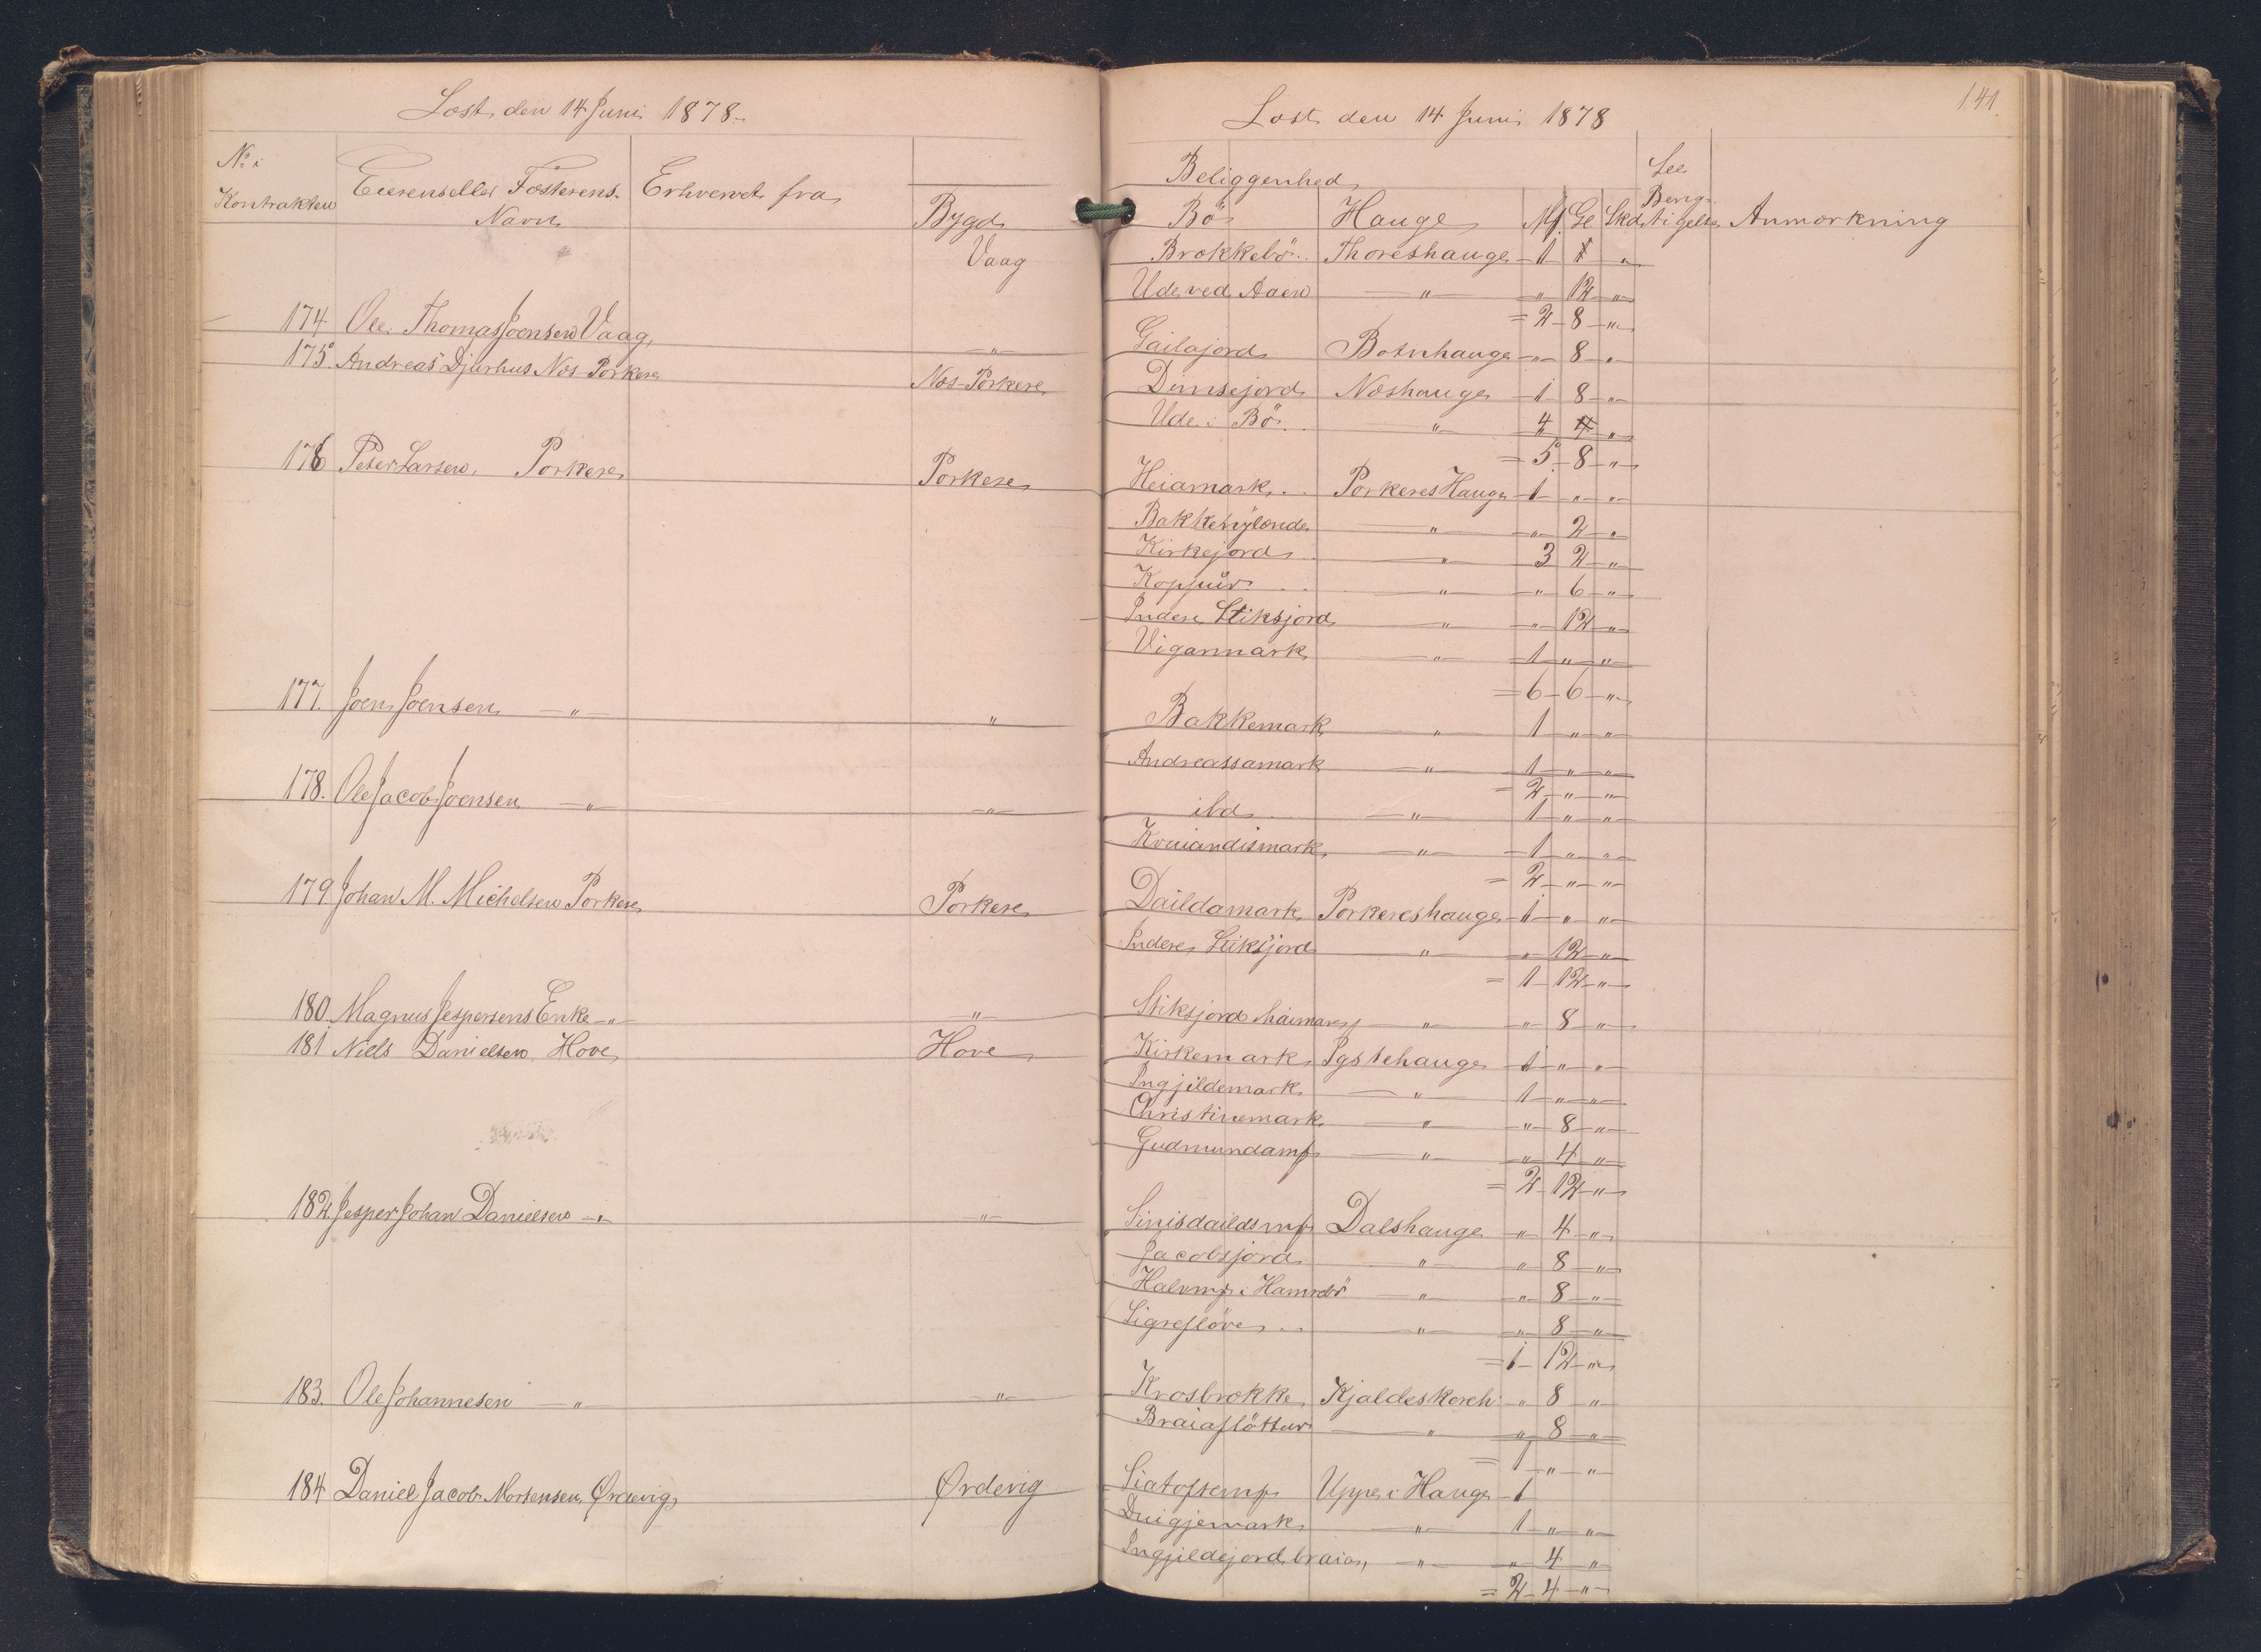 Læst den 14 Juni 1878.
Læst den 14 Juni 1878
141
No i Kontrakten Eierens eller Fæsterens Navn Erhvervet fra Bygd
Beliggenhed Bö Hauge Mf. Gl Skd Tigelse Anmærkning
Vaag Brokkebö Thoreshauge 1 "
Ude ved Aaen " " 12 "
= 2 8 "
174 Ole Thomas Joensen Vaag " Gailajord Botnhauge " 8 "
175. Andreas Djurhus Næs-Porkere Næs-Porkere Dimsejord Næshauge 1 8 "
Ude i Bö " 4 "
= 5 8 "
176 Peter Larsen Porkere Porkere Heiamark Porkeres Hauge 1 " "
" " 2 "
Kirkejord " 3 2 "
" " 6 "
Indere Stiksjord " " 12 "
Vigarmark " 1 " "
= 6 6 "
177. Joen Joensen " " Bakkemark " 1 " "
Andreassamark " 1 " "
= 2 " "
178. Ole Jacob Joensen " " ibd " 1 " "
" 1 " "
= 2 " "
179. Johan M. Michelsen Porkere Porkere Daildamark Porkereshauge 1 " "
Indere Stiksjord " " 12 "
= 1 12 "
180. Magnus Jespersens Enke " " Stiksjord " " 8 "
181 Niels Danielsen Hove Hove Kirkemark 1 " "
Ingjildemark " 1 " "
Christinemark " " 8 "
Gudmundamf " " 4 "
= 2 12 "
182. Jesper Johan Danielsen " " Dalshauge " 4 "
Jacobsjord " " 8 "
Halvmf i " " 8 "
" " 8 "
= 1 12 "
183. Ole Johannesen " " Krosbrokke " 8 "
Braiaflöttur " " 8 "
= 1 " "
184 Daniel Jacob Mortensen Ørdevig Ørdevig Uppe i Hauge 1
" 1 " "
Ingjildejord braia " " 4 "
= 2 4 "